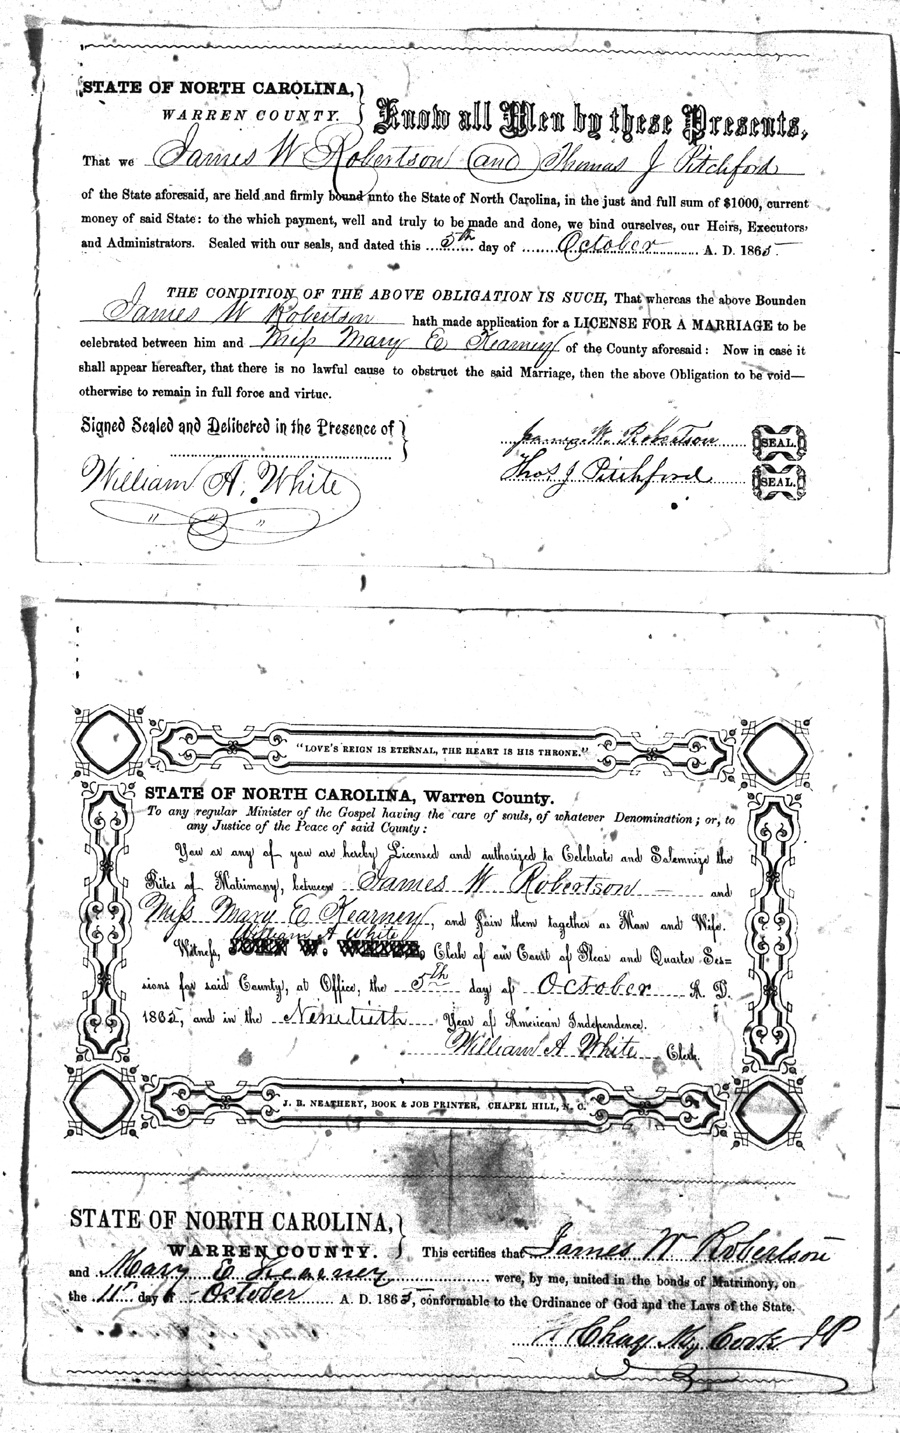 STATE OF NORTH CAROLINA,
WARREN COUNTY.
Know all Men by these Presents,
That we James W Robertson and Thomas J Pitchford
of the State aforesaid, are held and firmly bound unto the State of North Carolina, in the just and full sum of $1000, current
money of said State: to the which payment, well and truly to be made and done, we bind ourselves, our Heirs, Executors,
and Administrators. Sealed with our seals, and dated this 5th day of October A. D. 1865
THE CONDITION OF THE ABOVE OBLIGATION IS SUCH, That whereas the above Bounden
James W Robertson hath made application for a LICENSE FOR A MARRIAGE to be
celebrated between him and Miss Mary E Kearney of the County aforesaid: Now in case it
shall appear hereafter, that there is no lawful cause to obstruct the said Marriage, then the above Obligation to be void—
otherwise to remain in full force and virtue.
Signed Sealed and Delibered in the Presence of
James W. Robertson SEAL.
William A. White
Thos J Pitchford SEAL.
"LOVE'S REIGN IS ETERNAL, THE HEART IS HIS THRONE."
STATE OF NORTH CAROLINA, Warren County.
To any regular Minister of the Gospel having the care of souls, of whatever Denomination; or, to
any Justice of the Peace of said County:
You or any of you are hereby Licensed and authorized to Celebrate and Solemnize the
Rites of Matrimony, between James W Robertson and
Miss Mary E Kearney, and Join them together as Man and Wife.
William A White
Witness, JOHN W. WHITE, Clerk of our Court of Pleas and Quarter Ses=
sions for said County, at Office, the 5th day of October A. D.
186 , and in the Ninetieth Year of American Independence.
William A White Clerk.
J. B. NEATHERY, BOOK & JOB PRINTER, CHAPEL HILL, N. C.
STATE OF NORTH CAROLINA,
WARREN COUNTY.
This certifies that James W Robertson
and Mary E Kearney were, by me, united in the bonds of Matrimony, on
the 11th day of October A. D. 1865, conformable to the Ordinance of God and the Laws of the State.
Cook JP